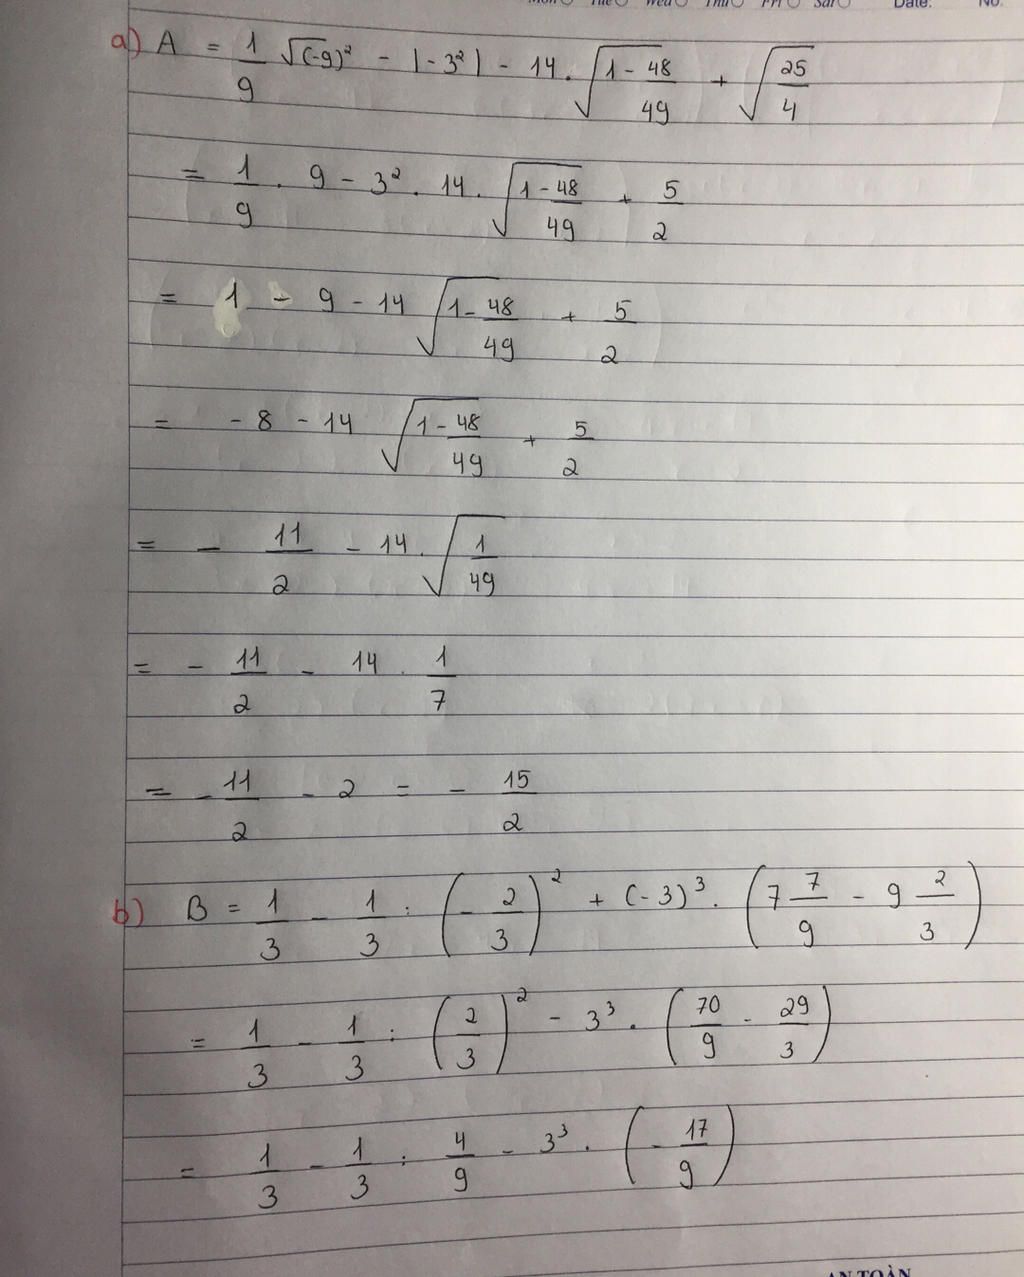 Mon Tue Wed Thu Fri Sat Date: No.
a) A = 1/9 √(-9)² - |-3²| - 14 . √(1 - 48/49) + √(25/4)
= 1/9 . 9 - 3² . 14 . √(1 - 48/49) + 5/2
= 1 - 9 - 14 √(1 - 48/49) + 5/2
= - 8 - 14 √(1 - 48/49) + 5/2
= - 11/2 - 14 . √(1/49)
= - 11/2 - 14 . 1/7
= - 11/2 - 2 = - 15/2
b) B = 1/3 - 1/3 : (- 2/3)² + (-3)³ . (7 7/9 - 9 2/3)
= 1/3 - 1/3 : (2/3)² - 3³ . (70/9 - 29/3)
= 1/3 - 1/3 : 4/9 - 3³ . (- 17/9)
AN TOÀN